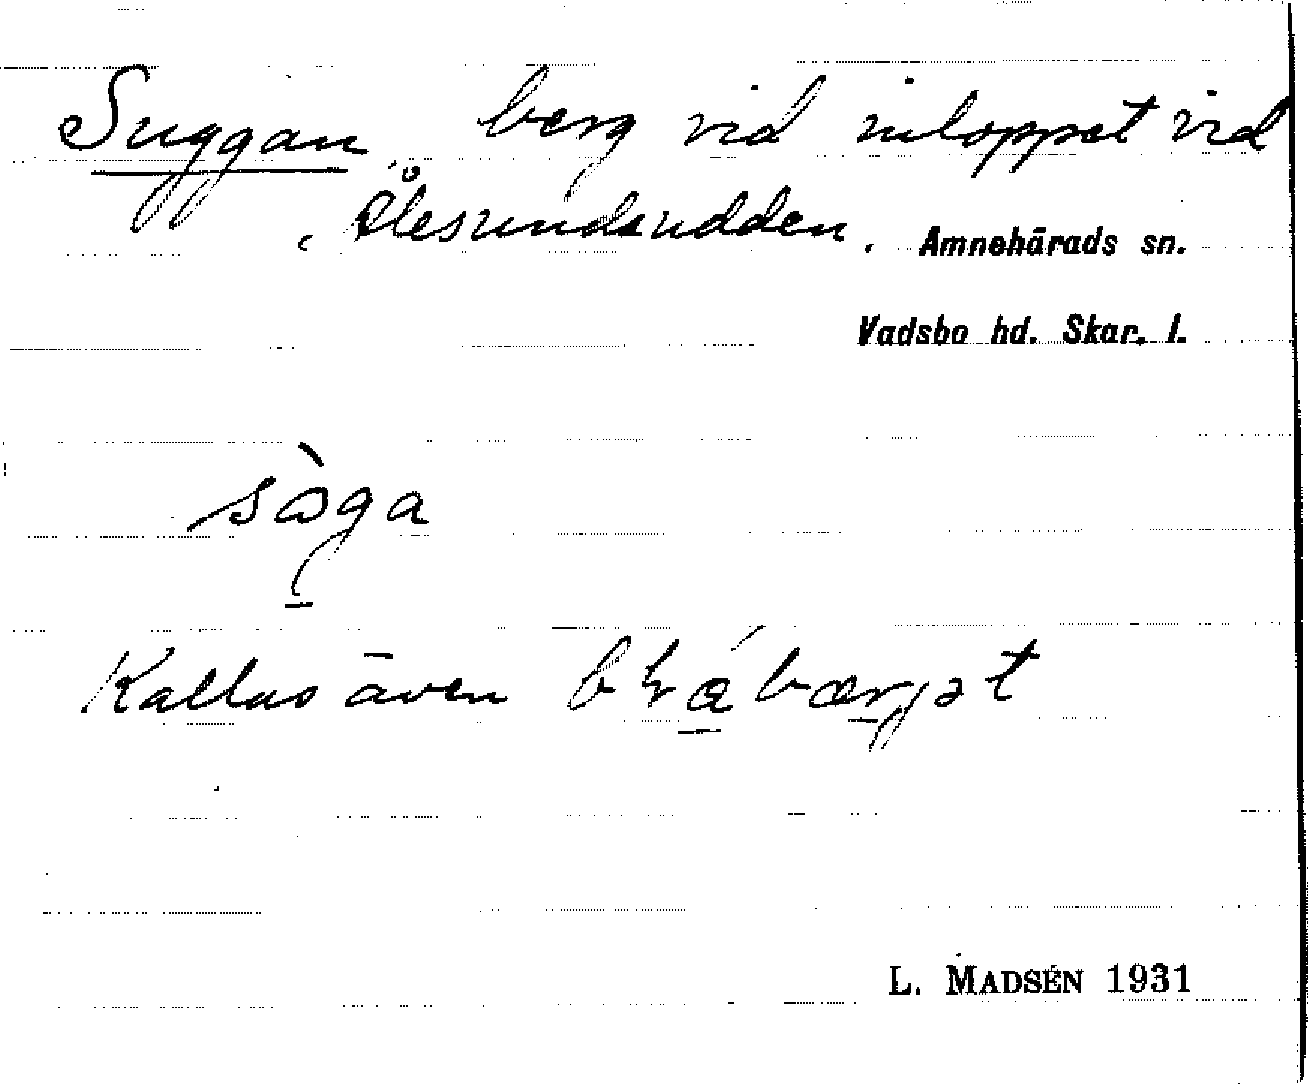 Suggan, berg vid inloppet vid
Ålesundsudden. Amnehärads sn.
Vadsbo hd. Skar. l.
Kallas även
L. MADSÉN 1931